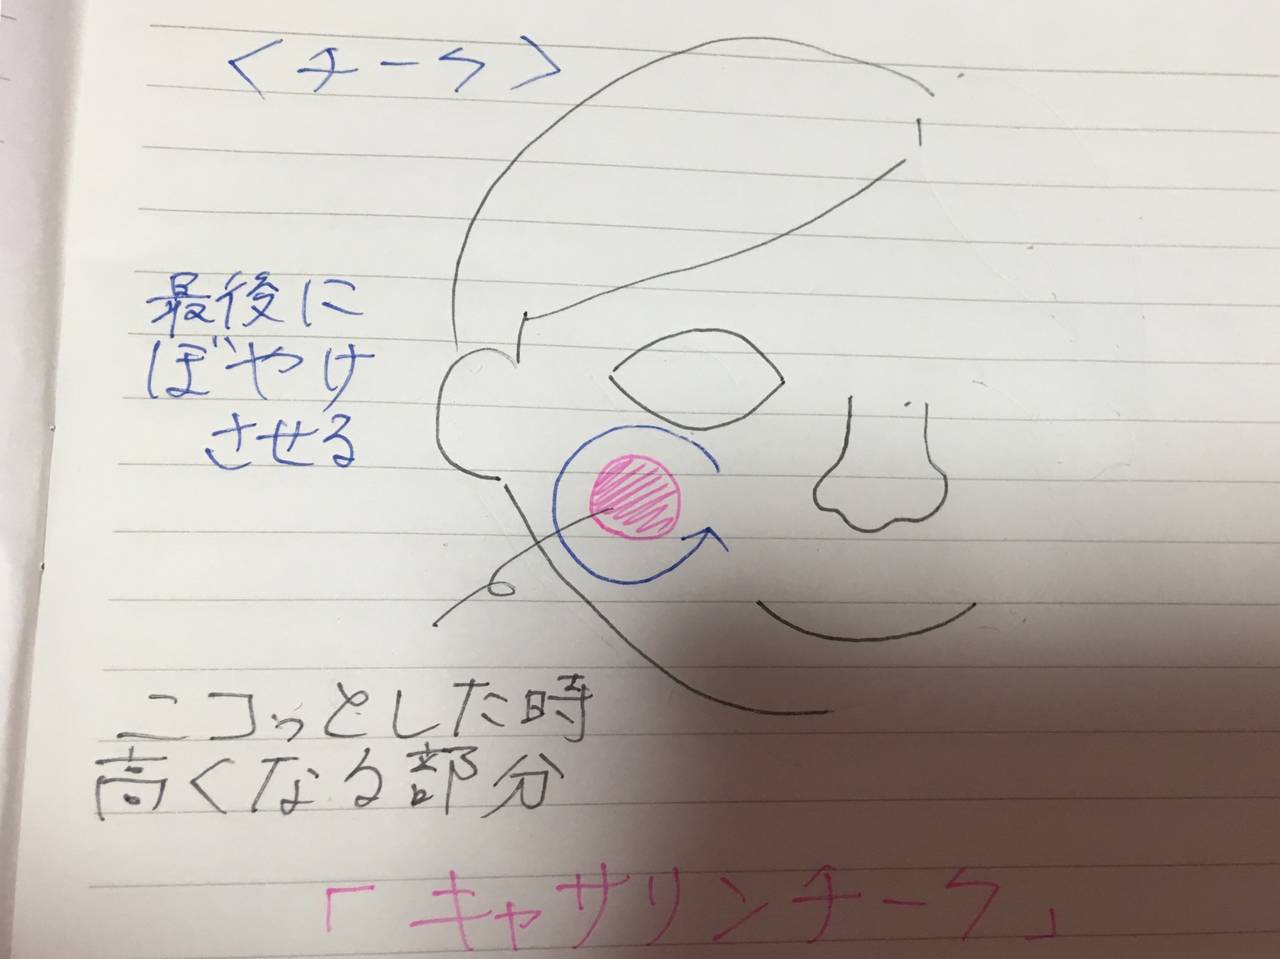 <チーク>
最後に
ぼやけ
させる
ニコッとした時
高くなる部分
「キャサリンチーク」